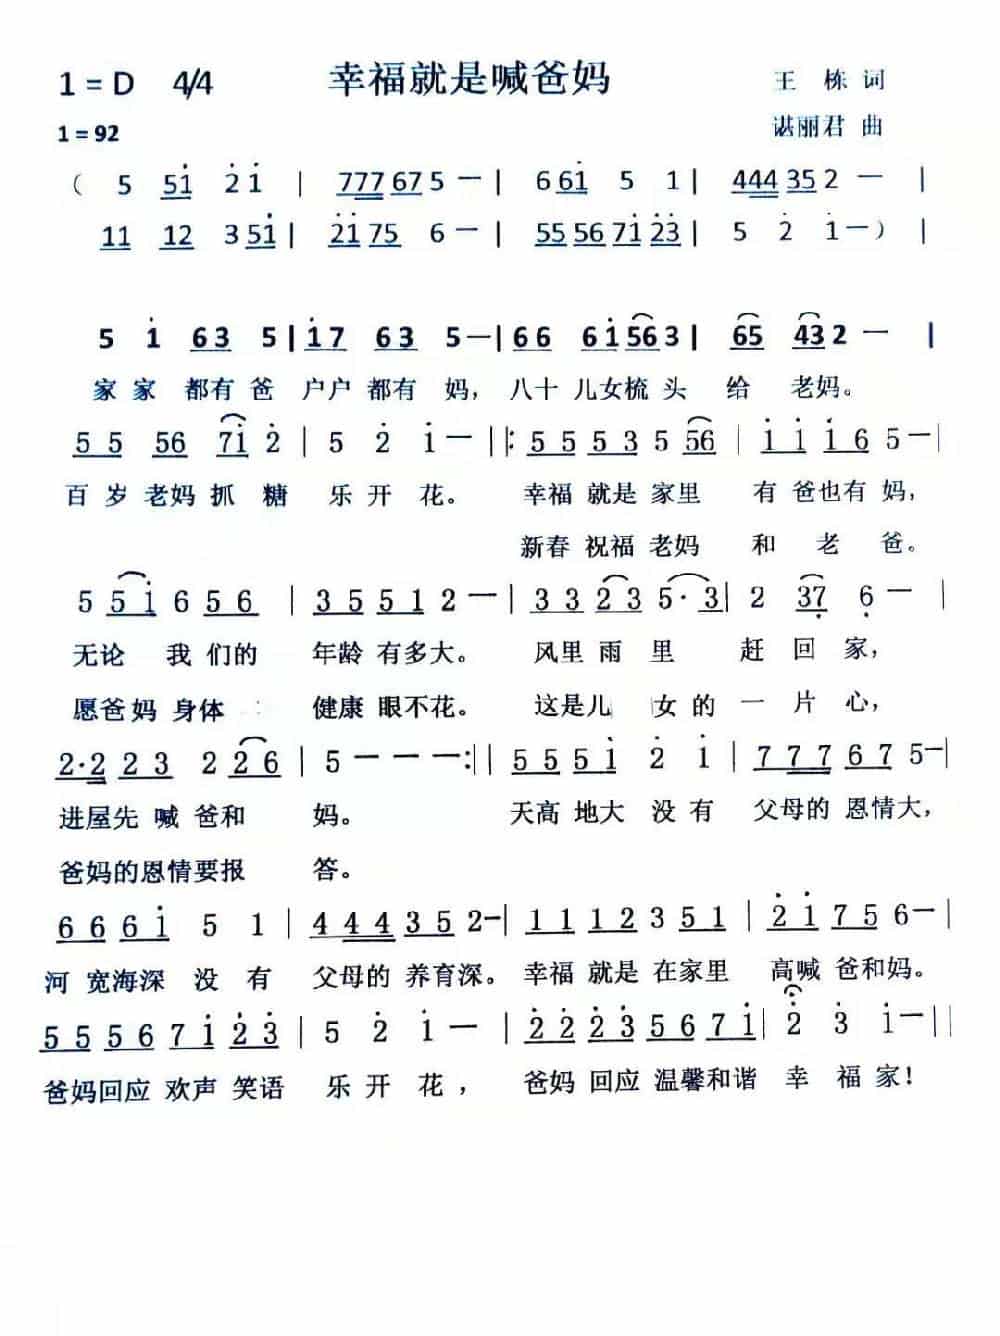 1 = D 4/4 幸福就是喊爸妈 王 栋 词
1 = 92 谌丽君 曲
( 5 51̇ 2̇ 1̇ | 777 67 5 — | 6 61̇ 5 1 | 444 35 2 — |
11 12 3 51̇ | 2̇1̇75 6 — | 55 56 71̇ 2̇3̇ | 5 2̇ 1̇ — ) |
5 1̇ 63 5 | 1̇7 63 5 — | 66 61̇ 563 | 65 432 — |
家 家 都有 爸 户户 都有 妈, 八十 儿女梳 头 给 老妈。
55 56 71̇ 2̇ | 5 2̇ 1̇ — ||: 55 53 5 56 | 1̇1̇ 1̇6 5 — |
百 岁 老妈 抓 糖 乐 开 花。 幸福 就是 家里 有 爸也有 妈,
新春 祝福 老妈 和 老 爸。
5 51̇ 6 56 | 35 51 2 — | 33 23 5·3 | 2 37̣ 6̣ — |
无论 我 们的 年龄 有多大。 风里 雨 里 赶 回 家,
愿爸妈 身体 健康 眼不花。 这是儿 女 的 一 片 心,
2·2 23 2 26 | 5 — — — :|| 55 51̇ 2̇ 1̇ | 777 67 5 — |
进屋先 喊 爸和 妈。 天高 地大 没 有 父母的 恩情大,
爸妈的恩情要报 答。
66 61̇ 5 1 | 444 35 2 — | 11 12 3 51 | 2̇1̇75 6 — |
河 宽海深 没 有 父母的 养育深。 幸福 就是 在家里 高喊 爸和妈。
55 56 71̇ 2̇3̇ | 5 2̇ 1̇ — | 2̇2̇ 2̇3̇ 56 71̇ | 2̇ 3̇ 1̇ — ||
爸妈回应 欢声 笑语 乐 开 花, 爸妈 回应 温馨和谐 幸 福 家!